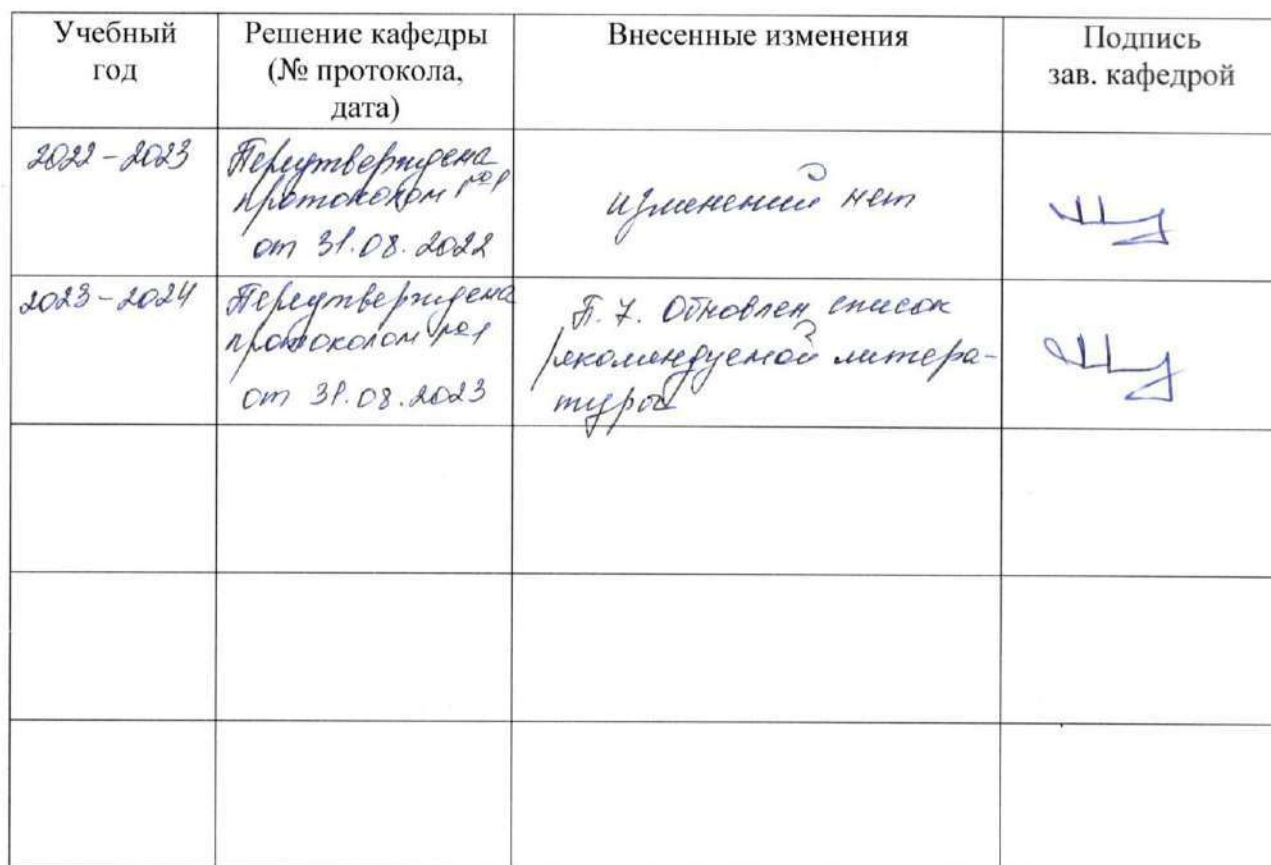 Учебный
год
Решение кафедры
(№ протокола,
дата)
Внесенные изменения
Подпись
зав. кафедрой
2022-2023
Переутверждена
протоколом №1
от 31.08.2022
изменений нет
2023-2024
Переутверждена
протоколом №1
от 31.08.2023
П. 7. Обновлен список
рекомендуемой литера-
туры